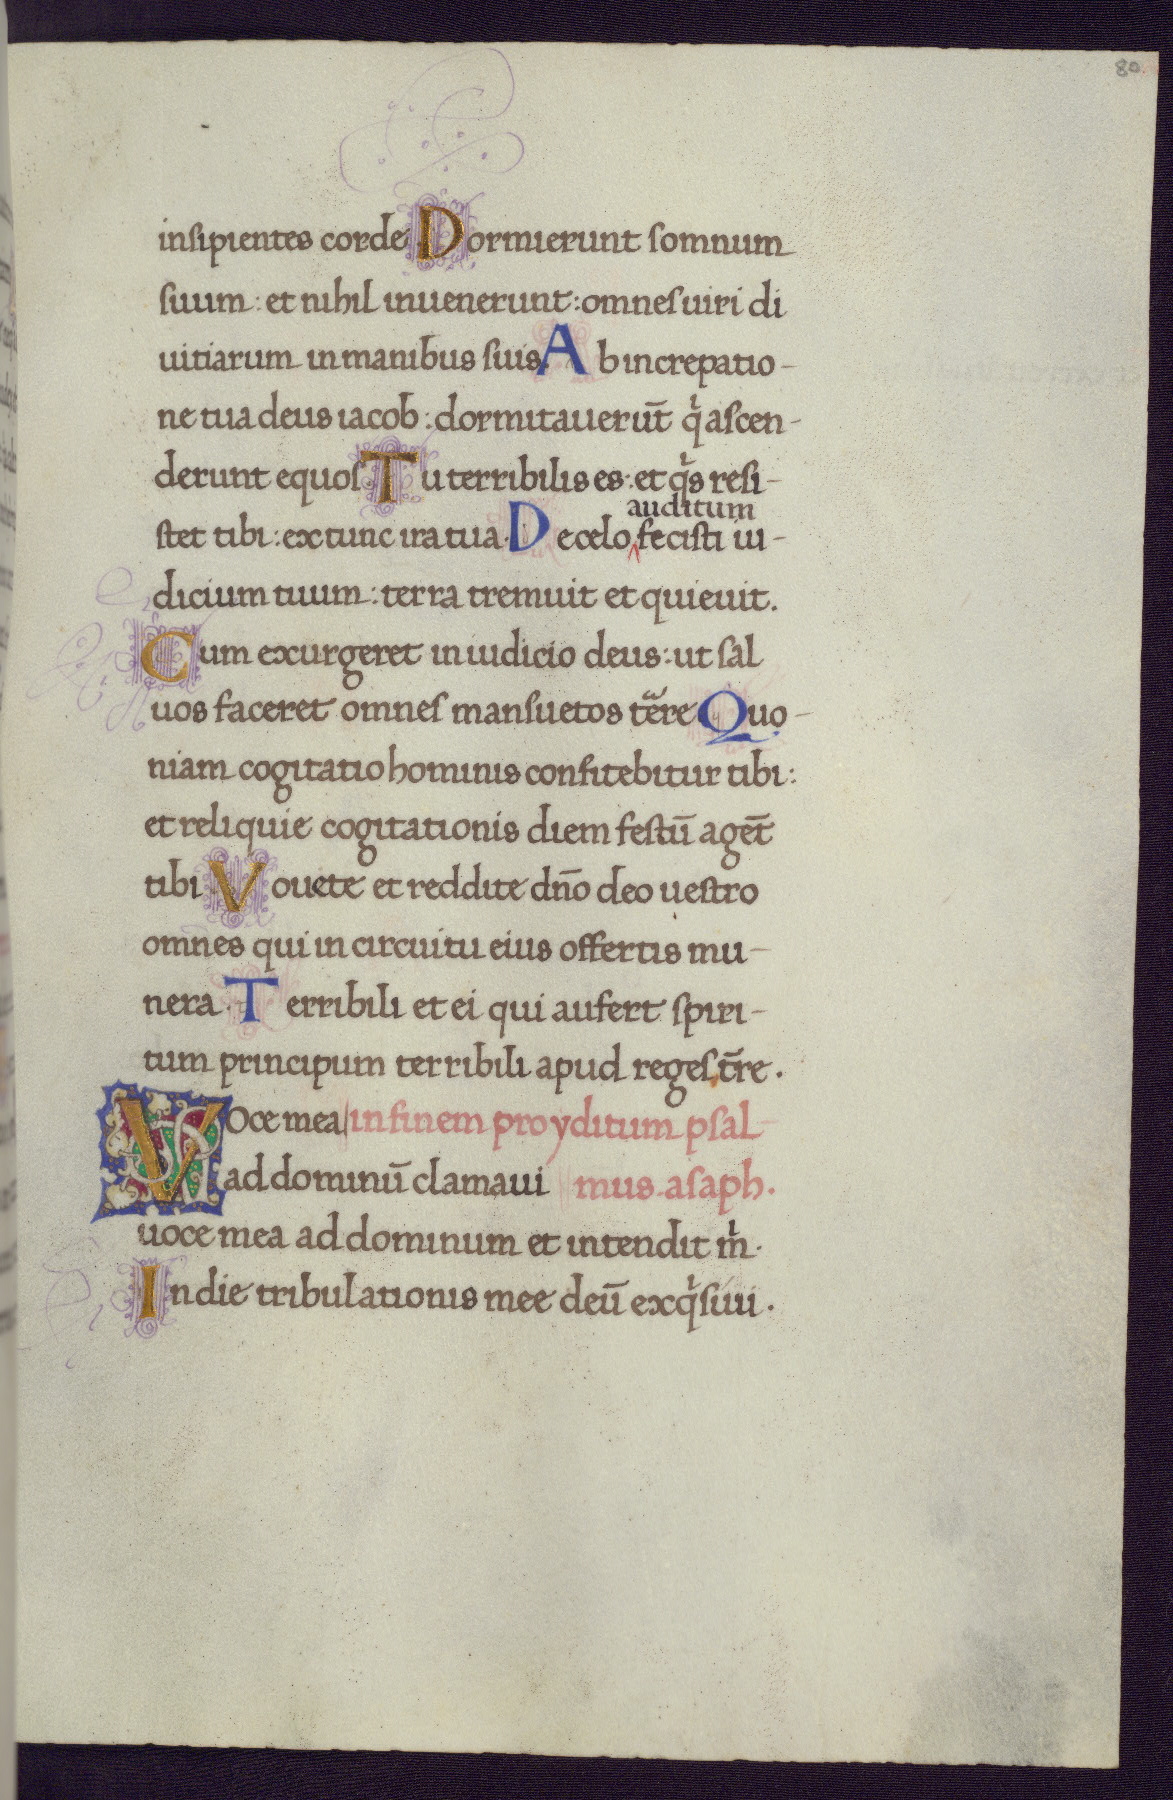 80
insipientes corde Dormierunt somnum
suum: et nihil inuenerunt: omnes uiri di
uitiarum in manibus suis. Ab increpatio-
ne tua deus iacob: dormitauerūt qͥ ascen-
derunt equos Tu terribilis es: et qͥs resi-
auditum
stet tibi: ex tunc ira tua. De celo ‸ fecisti iu-
dicium tuum: terra tremuit et quieuit.
Cum exurgeret in iudicio deus: ut sal
uos faceret omnes mansuetos t̄re Quo-
niam cogitatio hominis confitebitur tibi:
et reliquie cogitationis diem festū aget̄
tibi Vouete et reddite dn̄o deo uestro
omnes qui in circuitu eius offertis mu-
nera. Terribili et ei qui aufert spiri-
tum principum terribili apud reges t̄re.
Voce mea in finem pro yditum psal-
ad dominū clamaui mus asaph.
uoce mea ad dominum et intendit mͥ.
In die tribulationis mee deū exqͥsiui.